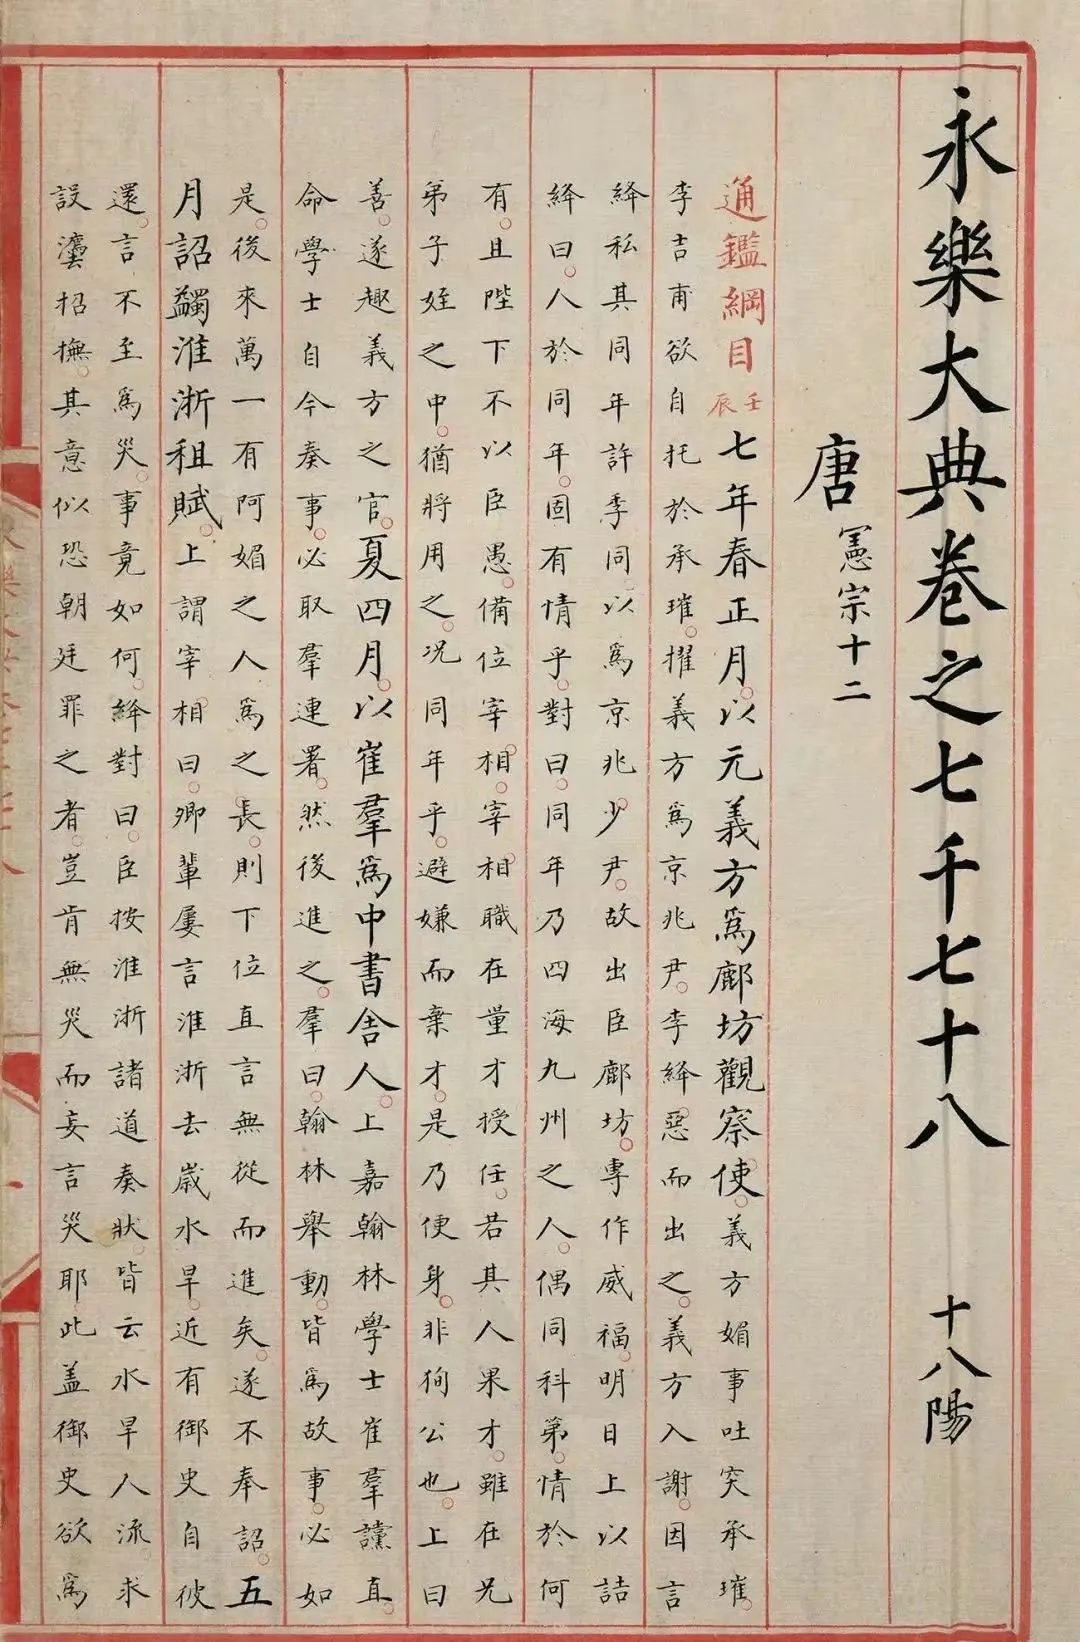 永樂大典卷之七千七十八 十八陽
唐 憲宗十二
通鑑綱目 壬辰 七年春正月。以元義方爲鄜坊觀察使。義方媚事吐突承璀。
李吉甫欲自托於承璀。擢義方爲京兆尹。李絳惡而出之。義方入謝。因言
絳私其同年許季同。以爲京兆少尹。故出臣鄜坊。專作威福。明日上以詰
絳曰。人於同年。固有情乎。對曰。同年乃四海九州之人。偶同科第。情於何
有。且陛下不以臣愚。備位宰相。宰相職在量才授任。若其人果才。雖在兄
弟子姪之中。猶將用之。况同年乎。避嫌而棄才。是乃便身。非徇公也。上曰
善。遂趣義方之官。夏四月。以崔羣爲中書舍人。上嘉翰林學士崔羣讜直。
命學士自今奏事。必取羣連署。然後進之。羣曰。翰林舉動。皆爲故事。必如
是。後來萬一有阿媚之人爲之長。則下位直言無從而進矣。遂不奉詔。五
月詔蠲淮浙租賦。上謂宰相曰。卿輩屢言淮浙去歲水旱。近有御史自彼
還。言不至爲災。事竟如何。絳對曰。臣按淮浙諸道奏狀。皆云水旱人流。求
設灋招撫。其意似恐朝廷罪之者。豈肯無災而妄言災耶此盖御史欲爲